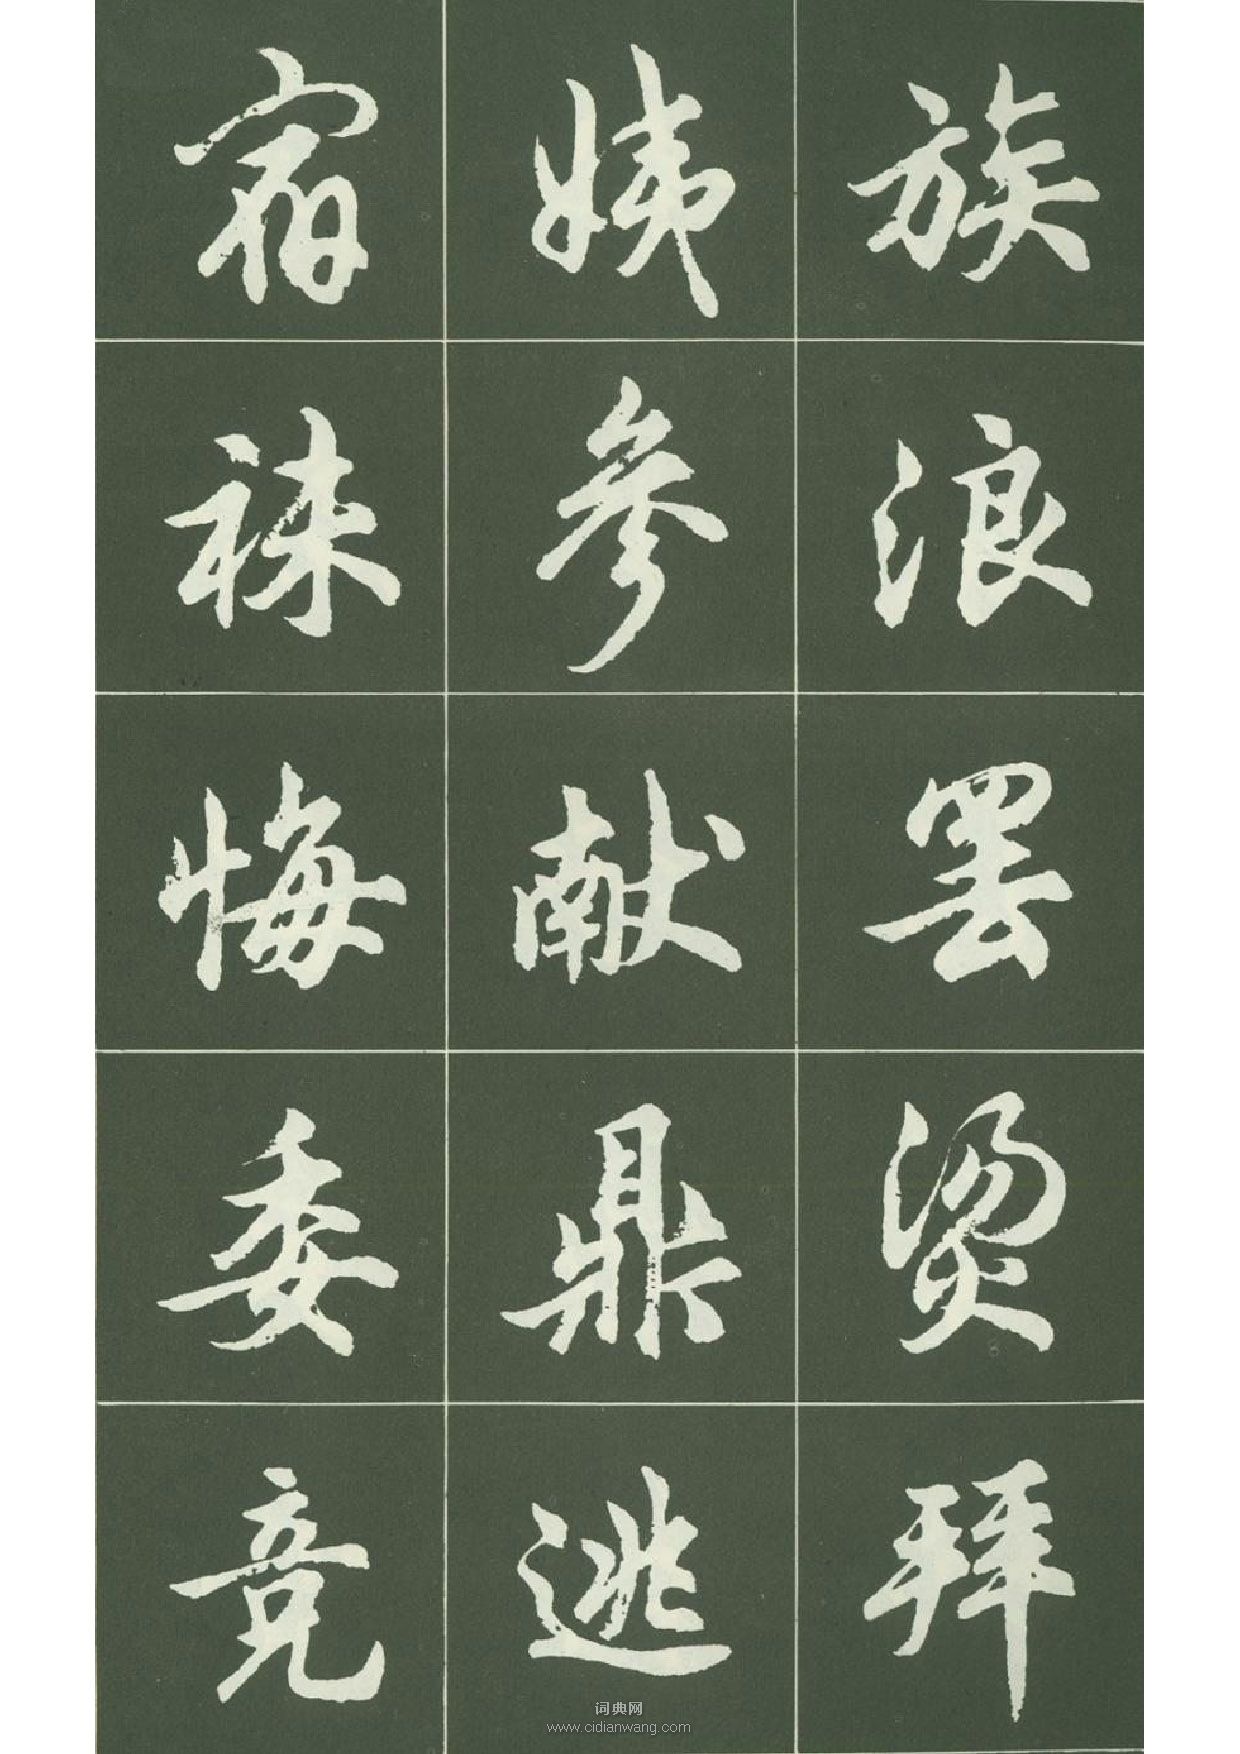 族浪罢烫拜
姨参献鼎逃
宿袜悔委竞
词典网
www.cidianwang.com